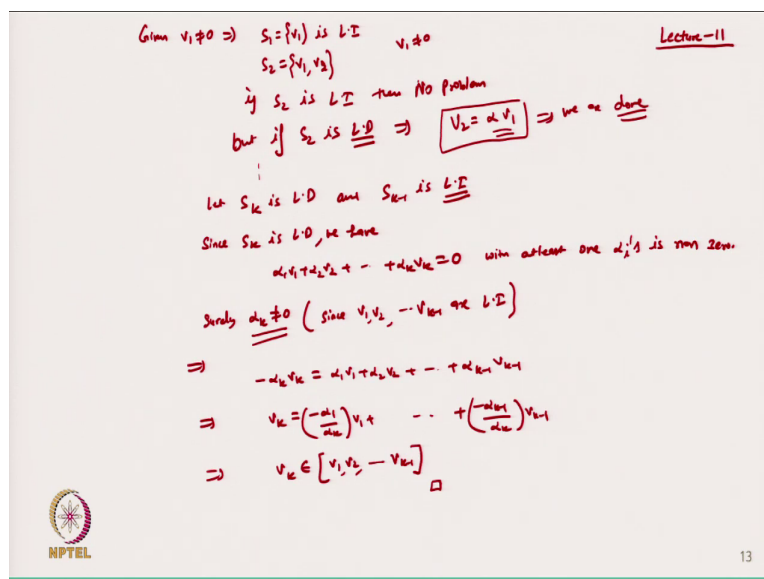 Lecture-11
Given v₁≠0 ⇒ S₁={v₁} is L.I v₁≠0
S₂={v₁,v₂}
if S₂ is LI then No problem
but if S₂ is L.D ⇒ V₂=αv₁ ⇒ we are done
⋮
let Sₖ is L.D and Sₖ₋₁ is L.I
Since Sₖ is L.D, we have
α₁v₁+α₂v₂+ - - +αₖvₖ=0 with atleast one αᵢ's is non zero.
Surely αₖ≠0 (since v₁,v₂, --vₖ₋₁ are L.I)
⇒ -αₖvₖ = α₁v₁+α₂v₂+ - - +αₖ₋₁vₖ₋₁
⇒ vₖ=(-α₁/αₖ)v₁+ - - +(-αₖ₋₁/αₖ)vₖ₋₁
⇒ vₖ∈[v₁,v₂, -- vₖ₋₁] □
NPTEL
13